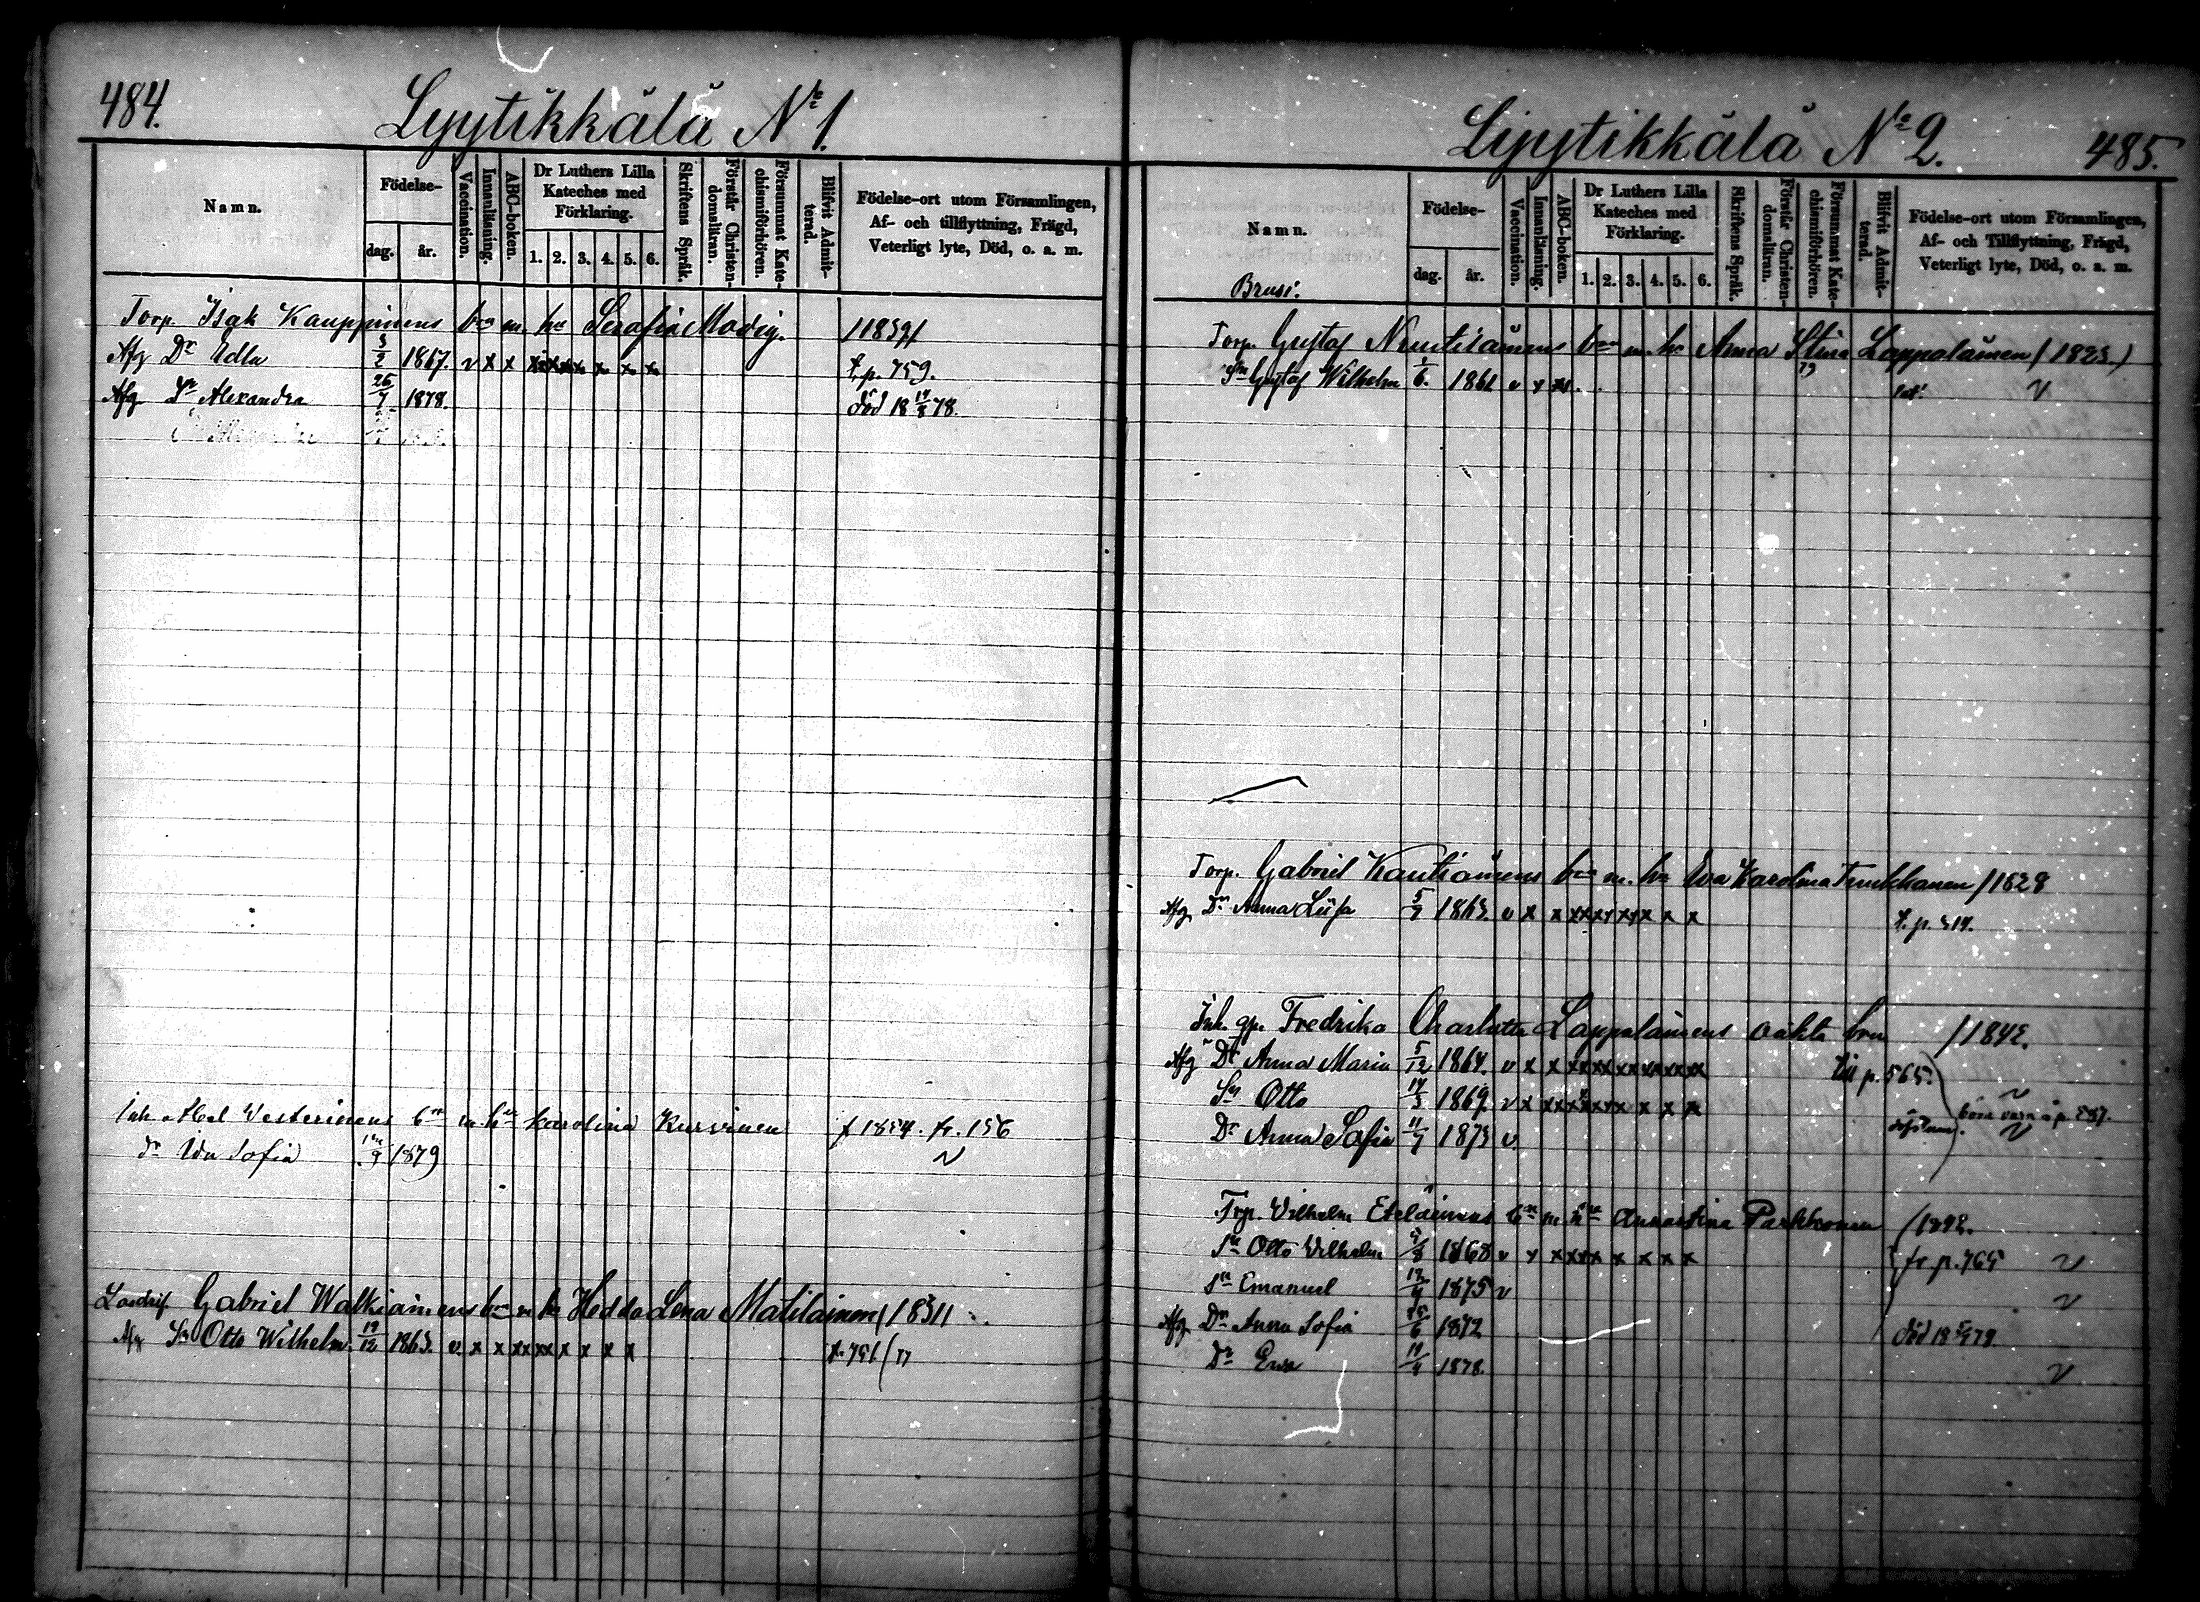 484.
Lyytikkälä No 1.
Namn.
Födelse-
dag. år.
Vaccination.
Innanläsning.
ABC-boken.
Dr Luthers Lilla Kateches med Förklaring.
1. 2. 3. 4. 5. 6.
Skriftens Språk.
Förstår Christendomsläran.
Försummat Katechismiförhören.
Blifvit Admitterad.
Födelse-ort utom Församlingen, Af- och tillflyttning, Frägd, Veterligt lyte, Död, o. a. m.
Torp. Isak Kauppinens brn m. hu Serafia Modig. /1839/
Afg Dr Edla 3/2 1867. v x x t. p. 759.
Afg Dr Alexandra 26/7 1878. död 18 19/8 78.
Inh. Abel Westerinens brn m. hu Karolina Kurvinen f 1854. fr. 156
dr Ida Sofia 9 1879
Gabriel Walkiainens brn m hu Hedda Lena Matilainen /1831/
Afg Sn Otto Wilhelm 19/12 1863. v. x x xx xx x x x x t. 751
Lyytikkälä No 2.
485.
Namn.
Brusi.
Födelse-
dag. år.
Vaccination.
Innanläsning.
ABC-boken.
Dr Luthers Lilla Kateches med Förklaring.
1. 2. 3. 4. 5. 6.
Skriftens Språk.
Förstår Christendomsläran.
Försummat Katechismiförhören.
Blifvit Admitterad.
Födelse-ort utom Församlingen, Af- och Tillflyttning, Frägd, Veterligt lyte, Död, o. a. m.
Torp. Gustaf brn m. hu Anna Stina Lappalainen /1823/
Sn Gustaf Wilhelm 1/6. 1861 v x
Torp. Gabriel Kautiainens brn m. hu Eva Karolina Turkkanen /1828
Afg Dr Anna Lisa 5/7 1863 v x x xx xx xx x x x t. p. 519.
Inh. qp. Fredrika Charlotta Lappalainens oäkta brn /1842.
Afg Dr Anna Maria 5/12 1864. v x x till p. 565.
Sn Otto 17/3 1869 v x
Dr Anna Sofia 11/7 1873 v. böra vara å p.
Trp. Wilhelm Eteläinens brn m hu Anna Stina Parkkonen /1842.
Sn Otto Wilhelm 5/8 1868 v x fr p. 765
Sn Emanuel 1875 v
Afg Dr Anna Sofia 25/6 1872 död 18 79
Dr Ewa 1878.